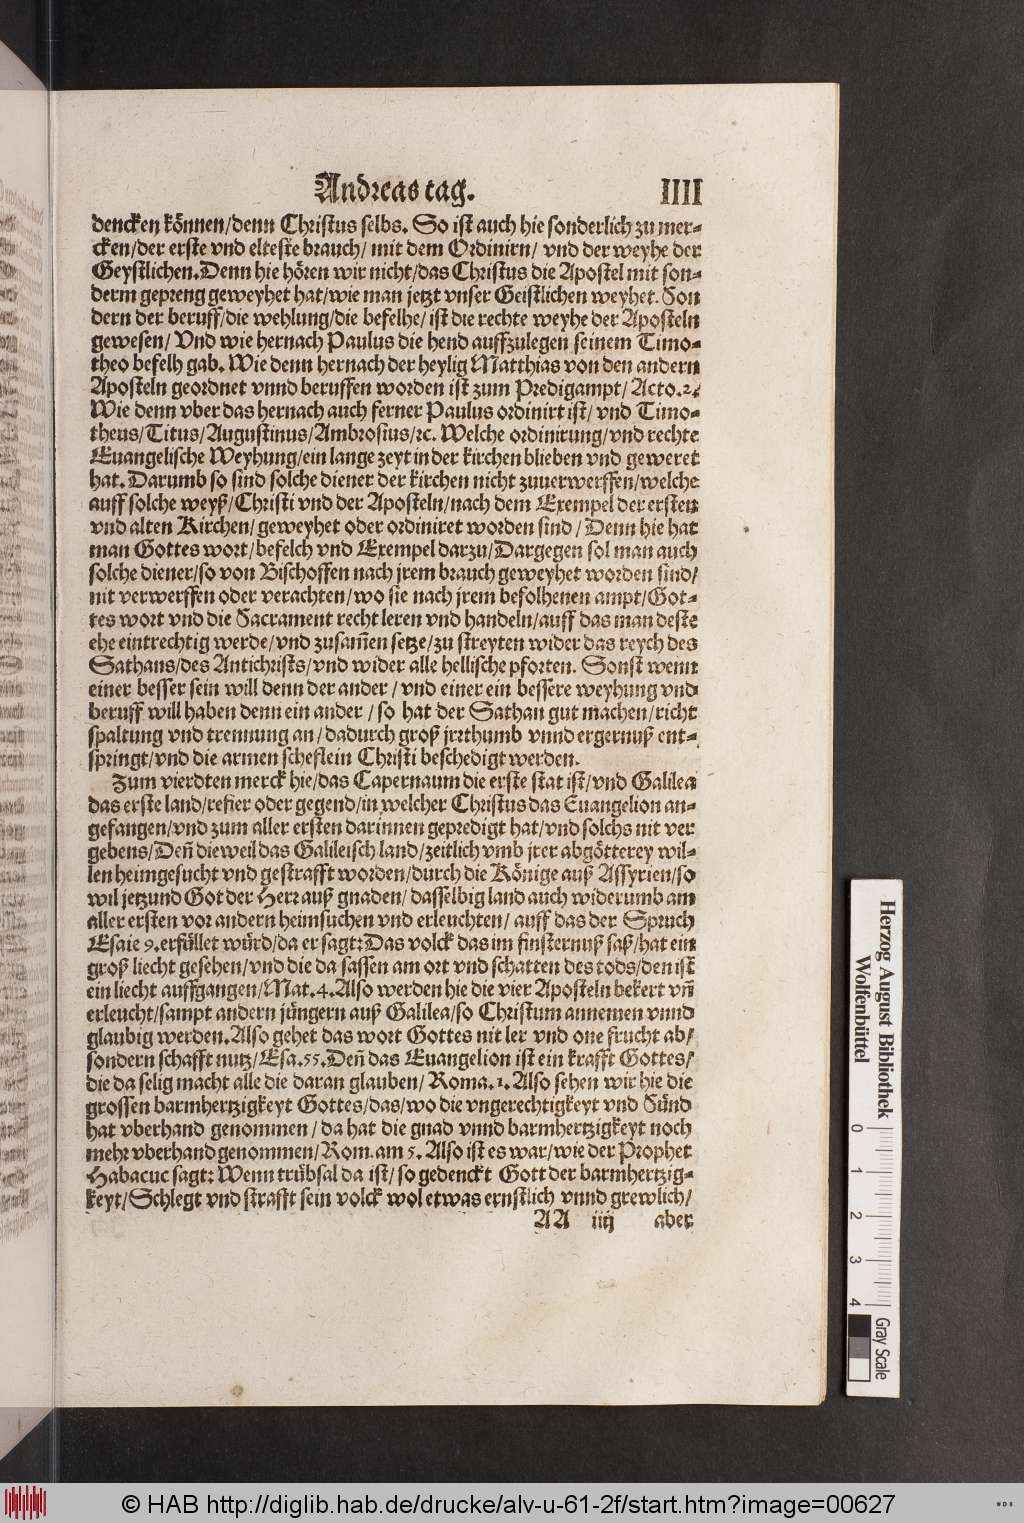 Andreas tag. IIII
dencken können/denn Christus selbs. So ist auch hie sonderlich zu mer-
cken/der erste vnd elteste brauch/ mit dem Ordinirn/ vnd der weyhe der
Geystlichen. Denn hie hören wir nicht/das Christus die Apostel mit son-
derm gepreng geweyhet hat/wie man jetzt vnser Geistlichen weyhet. Son
dern der beruff/die wehlung/die befelhe/ ist die rechte weyhe der Aposteln
gewesen/ Vnd wie hernach Paulus die hend auffzulegen seinem Timo-
theo befelh gab. Wie denn hernach der heylig Matthias von den andern
Aposteln geordnet vnnd beruffen worden ist zum Predigampt/ Acto.2.
Wie denn vber das hernach auch ferner Paulus ordinirt ist/ vnd Timo-
theus/Titus/Augustinus/Ambrosius/ꝛc. Welche ordinirung/vnd rechte
Euangelische Weyhung/ein lange zeyt in der kirchen blieben vnd geweret
hat. Darumb so sind solche diener der kirchen nicht zuuerwerffen/welche
auff solche weyß/Christi vnd der Aposteln/nach dem Exempel der ersten
vnd alten Kirchen/ geweyhet oder ordiniret worden sind / Denn hie hat
man Gottes wort/befelch vnd Exempel darzu/Dargegen sol man auch
solche diener/so von Bischoffen nach jrem brauch geweyhet worden sind/
nit verwerffen oder verachten/wo sie nach jrem befolhenen ampt/Got-
tes wort vnd die Sacrament recht leren vnd handeln/auff das man deste
ehe eintrechtig werde/vnd zusam̃en setze/zu streyten wider das reych des
Sathans/des Antichrists/vnd wider alle hellische pforten. Sonst wenn
einer besser sein will denn der ander / vnd einer ein bessere weyhung vnd
beruff will haben denn ein ander / so hat der Sathan gut machen/richt
spaltung vnd trennung an / dadurch groß jrrthumb vnnd ergernuß ent-
springt/vnd die armen scheflein Christi beschedigt werden.
Zum vierdten merck hie/das Capernaum die erste stat ist/vnd Galilea
das erste land/refier oder gegend/in welcher Christus das Euangelion an-
gefangen/vnd zum aller ersten darinnen gepredigt hat/vnd solchs nit ver
gebens/Den̄ dieweil das Galileisch land/zeitlich vmb jrer abgötterey wil-
len heimgesucht vnd gestrafft worden/durch die Könige auß Assyrien/so
wil jetzund Got der Herr auß gnaden/ dasselbig land auch widerumb am
aller ersten vor andern heimsuchen vnd erleuchten/ auff das der Spruch
Esaie 9. erfüllet würd/da er sagt: Das volck das im finsternuß saß/hat ein
groß liecht gesehen/vnd die da sassen am ort vnd schatten des tods/den ist
ein liecht auffgangen/Mat.4. Also werden hie die vier Aposteln bekert vn̄
erleucht/sampt andern jüngern auß Galilea/so Christum annemen vnnd
glaubig werden. Also gehet das wort Gottes nit ler vnd one frucht ab/
sondern schafft nutz/Esa.55. Den̄ das Euangelion ist ein krafft Gottes/
die da selig macht alle die daran glauben/ Roma.1. Also sehen wir hie die
grossen barmhertzigkeyt Gottes/das/wo die vngerechtigkeyt vnd Sünd
hat vberhand genommen / da hat die gnad vnnd barmhertzigkeyt noch
mehr vberhand genommen/ Rom. am 5. Also ist es war/wie der Prophet
Habacuc sagt: Wenn trübsal da ist/ so gedenckt Gott der barmhertzig-
keyt/Schlegt vnd strafft sein volck wol etwas ernstlich vnnd grewlich/
AA iiij aber
Herzog August Bibliothek
Wolfenbüttel
0 1 2 3 4
Gray Scale
© HAB http://diglib.hab.de/drucke/alv-u-61-2f/start.htm?image=00627